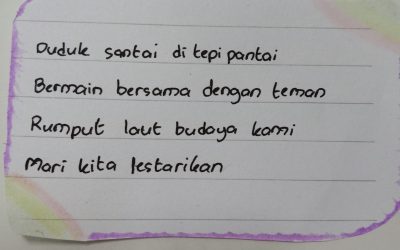 Duduk santai di tepi pantai
Bermain bersama dengan teman
Rumput laut budaya kami
Mari kita lestarikan